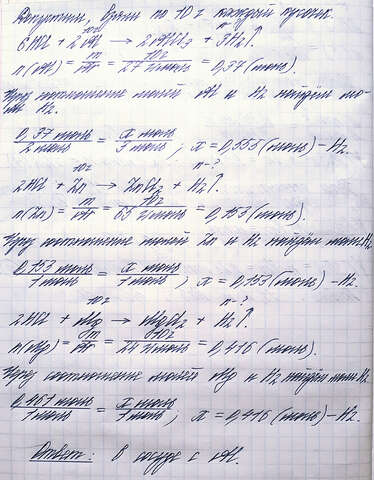 Допустим, взяли по 10 г каждый кусочек.
10г n-?
6HCl + 2Al → 2AlCl₃ + 3H₂↑.
n(Al) = m/M = 10г/27 г/моль = 0,37 (моль).
Через соотношение молей Al и H₂ найдём мо-
ли H₂.
0,37 моль/2 моль = x моль/3 моль, x = 0,555 (моль) – H₂.
10г n-?
2HCl + Zn → ZnCl₂ + H₂↑.
n(Zn) = m/M = 10г/65 г/моль = 0,153 (моль).
Через соотношение молей Zn и H₂ найдём моли H₂
0,153 моль/1 моль = x моль/1 моль, x = 0,153 (моль) – H₂.
10г n-?
2HCl + Mg → MgCl₂ + H₂↑.
n(Mg) = m/M = 10г/24 г/моль = 0,416 (моль).
Через соотношение молей Mg и H₂ найдём моли H₂
0,461 моль/1 моль = x моль/1 моль, x = 0,416 (моль) – H₂.
Ответ: В сосуде с Al.